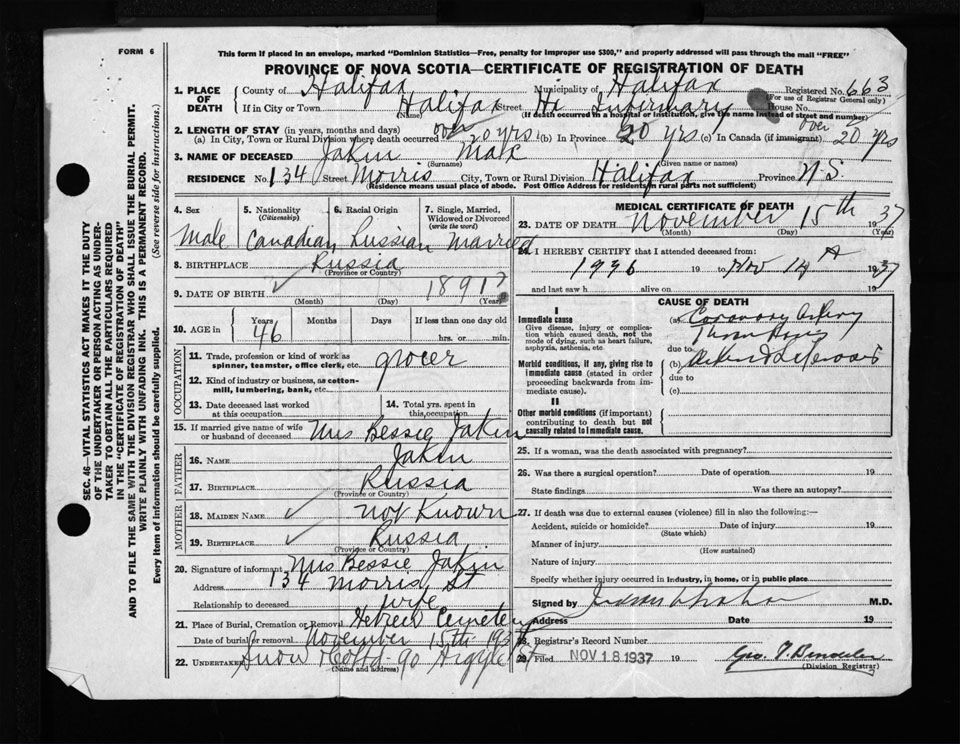 FORM 6
This form if placed in an envelope, marked "Dominion Statistics—Free, penalty for improper use $300," and properly addressed will pass through the mail "FREE"
PROVINCE OF NOVA SCOTIA—CERTIFICATE OF REGISTRATION OF DEATH
1. PLACE OF DEATH
County of Halifax Municipality of Halifax Registered No. 663
(For use of Registrar General only)
If in City or Town Halifax Street Hx Infirmary House No.
(Name) (If death occurred in a hospital or institution, give the name instead of street and number)
2. LENGTH OF STAY (in years, months and days)
(a) In City, Town or Rural Division where death occurred over 20 yrs (b) In Province 20 yrs (c) In Canada (if immigrant) over 20 yrs
3. NAME OF DECEASED Jakin Max
(Surname) (Given name or names)
RESIDENCE No. 134 Street Morris City, Town or Rural Division Halifax Province N.S.
(Residence means usual place of abode. Post Office Address for residents in rural parts not sufficient)
4. Sex
Male
5. Nationality (Citizenship)
Canadian
6. Racial Origin
Russian
7. Single, Married, Widowed or Divorced (write the word)
Married
8. BIRTHPLACE Russia
(Province or Country)
9. DATE OF BIRTH 1891
(Month) (Day) (Year)
10. AGE in
Years Months Days If less than one day old
46 hrs. or min.
OCCUPATION
11. Trade, profession or kind of work as spinner, teamster, office clerk, etc. grocer
12. Kind of industry or business, as cotton-mill, lumbering, bank, etc.
13. Date deceased last worked at this occupation
14. Total yrs. spent in this occupation
15. If married give name of wife or husband of deceased Mrs Bessie Jakin
FATHER
16. Name Jakin
17. Birthplace Russia
(Province or Country)
MOTHER
18. Maiden Name not known
19. Birthplace Russia
(Province or Country)
20. Signature of informant Mrs Bessie Jakin
Address 134 Morris St
Relationship to deceased wife
21. Place of Burial, Cremation or Removal Hebrew Cemetery
Date of burial or removal November 15th 1937
22. Undertaker Snow & Co Ltd 90 Argyle St
(Name and address)
MEDICAL CERTIFICATE OF DEATH
23. DATE OF DEATH November 15th 1937
(Month) (Day) (Year)
24. I HEREBY CERTIFY that I attended deceased from:
1936 19 to Nov 14 1937
and last saw h alive on 19
CAUSE OF DEATH
I
Immediate cause
Give disease, injury or complication which caused death, not the mode of dying, such as heart failure, asphyxia, asthenia, etc.
(a) Coronary Artery
Thrombosis
due to
Morbid conditions, if any, giving rise to immediate cause (stated in order of proceeding backwards from immediate cause).
(b)
due to
(c)
II
Other morbid conditions (if important) contributing to death but not causally related to immediate cause.
25. If a woman, was the death associated with pregnancy?
26. Was there a surgical operation? Date of operation 19
State findings Was there an autopsy?
27. If death was due to external causes (violence) fill in also the following:—
Accident, suicide or homicide? Date of injury 19
(State which)
Manner of injury
(How sustained)
Nature of injury
Specify whether injury occurred in industry, in home, or in public place
Signed by M.D.
Address Date 19
28. Registrar's Record Number
29. Filed NOV 18 1937 19
(Division Registrar)
SEC. 46—VITAL STATISTICS ACT MAKES IT THE DUTY
OF THE UNDERTAKER OR PERSON ACTING AS UNDER-
TAKER TO OBTAIN ALL THE PARTICULARS REQUIRED
IN THE "CERTIFICATE OF REGISTRATION OF DEATH"
AND TO FILE THE SAME WITH THE DIVISION REGISTRAR WHO SHALL ISSUE THE BURIAL PERMIT.
WRITE PLAINLY WITH UNFADING INK. THIS IS A PERMANENT RECORD.
Every item of information should be carefully supplied. (See reverse side for instructions.)